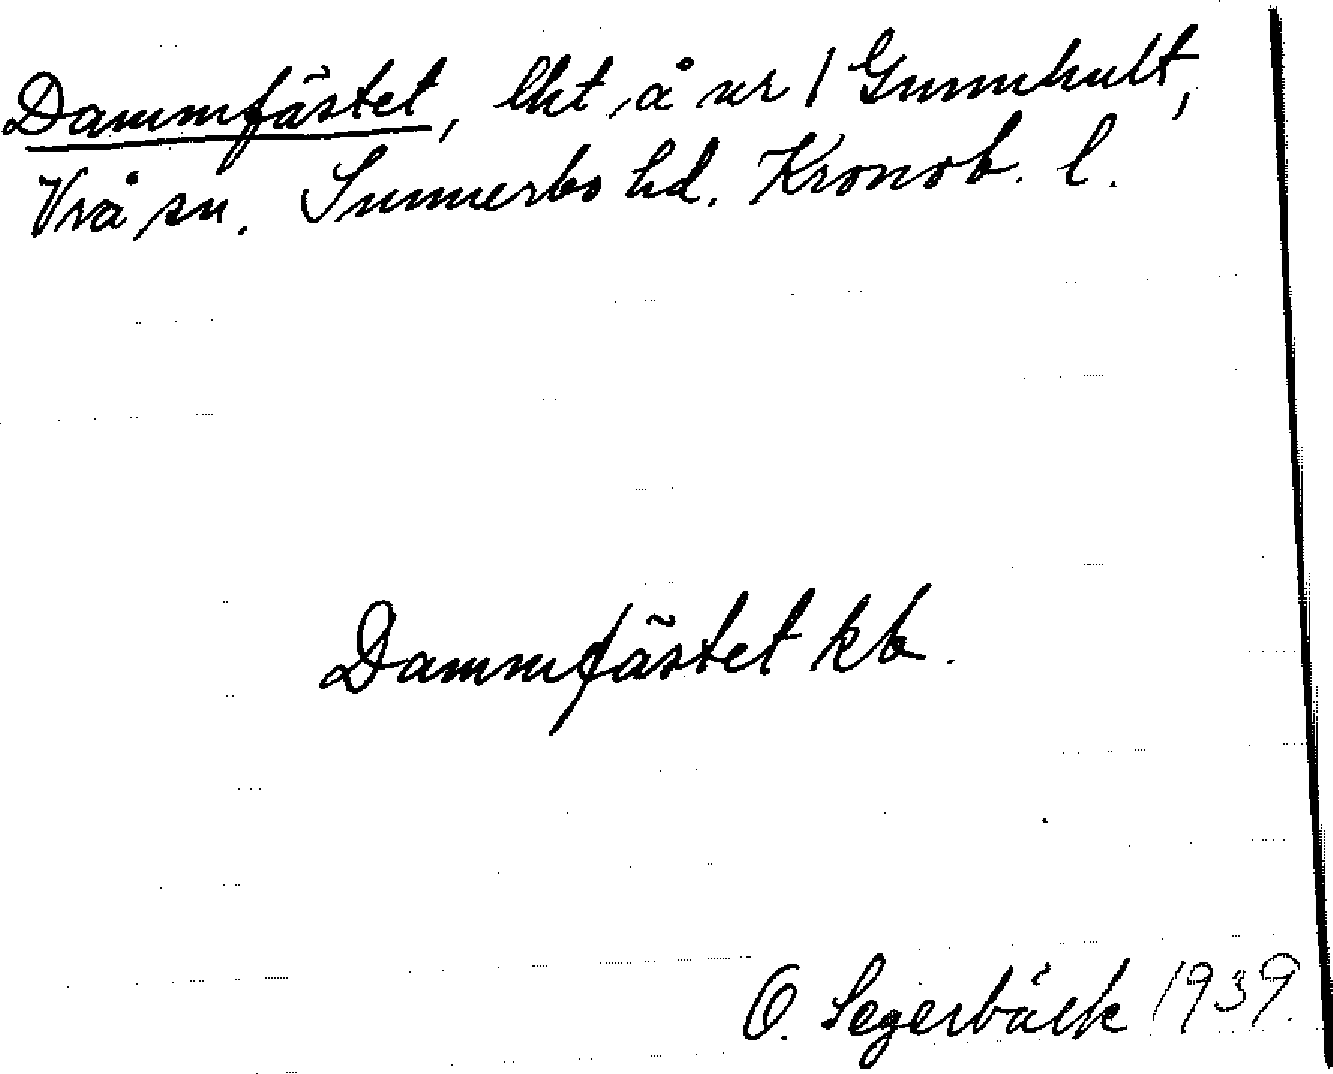 Dammfästet, lht, å nr 1 Gunnhult,
Vrå sn. Sunnerbo hd. Kronob. l.
Dammfästet kb.
O. Segerbäck 1939.